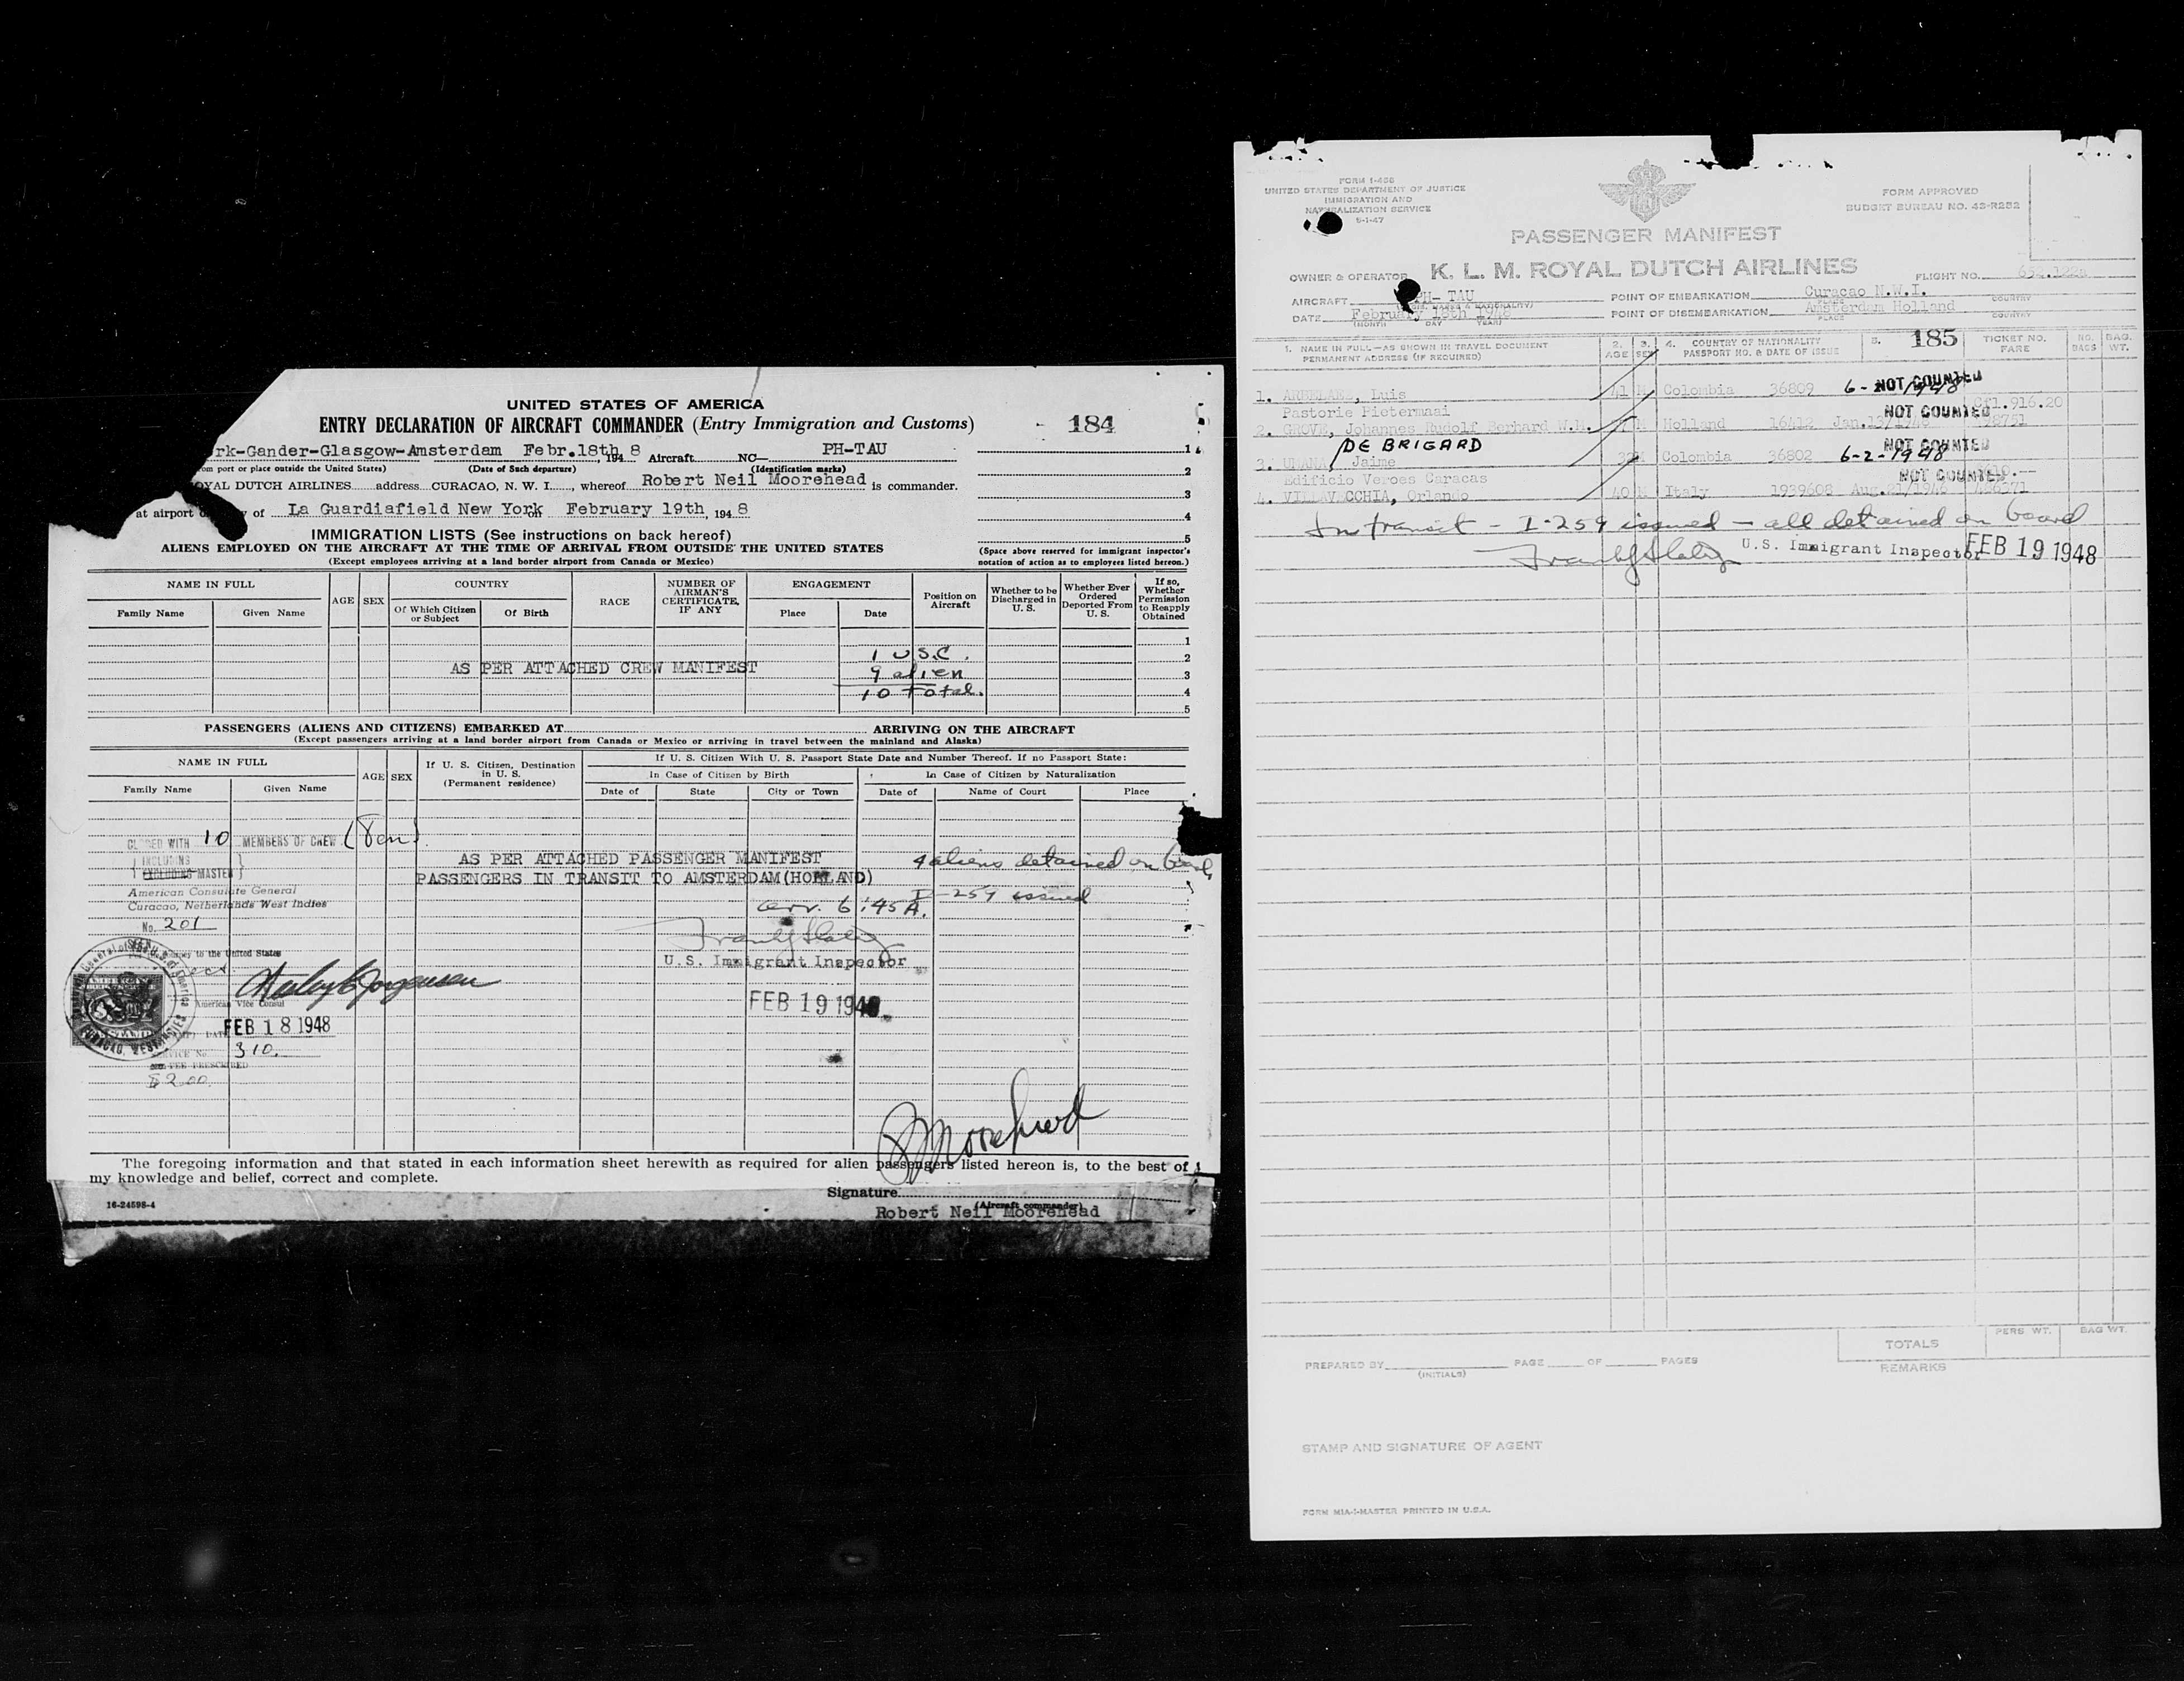 UNITED STATES OF AMERICA
ENTRY DECLARATION OF AIRCRAFT COMMANDER (Entry Immigration and Customs)
184
rk-Gander-Glasgow-Amsterdam Febr.18th, 194 8 Aircraft NC— PH-TAU
om port or place outside the United States) (Date of Such departure) (Identification marks)
OYAL DUTCH AIRLINES address CURACAO, N. W. I., whereof Robert Neil Moorehead is commander.
at airport of La Guardiafield New York on February 19th, 194 8
1
2
3
4
5
IMMIGRATION LISTS (See instructions on back hereof)
ALIENS EMPLOYED ON THE AIRCRAFT AT THE TIME OF ARRIVAL FROM OUTSIDE THE UNITED STATES
(Except employees arriving at a land border airport from Canada or Mexico)
(Space above reserved for immigrant inspector's
notation of action as to employees listed hereon.)
NAME IN FULL
Family Name
Given Name
AGE
SEX
COUNTRY
Of Which Citizen
or Subject
Of Birth
RACE
NUMBER OF
AIRMAN'S
CERTIFICATE,
IF ANY
ENGAGEMENT
Place
Date
Position on
Aircraft
Whether to be
Discharged in
U. S.
Whether Ever
Ordered
Deported From
U. S.
If so,
Whether
Permission
to Reapply
Obtained
1
2
3
4
5
AS PER ATTACHED CREW MANIFEST
1 U.S.C.
9 alien
10 total.
PASSENGERS (ALIENS AND CITIZENS) EMBARKED AT ARRIVING ON THE AIRCRAFT
(Except passengers arriving at a land border airport from Canada or Mexico or arriving in travel between the mainland and Alaska)
NAME IN FULL
Family Name
Given Name
AGE
SEX
If U. S. Citizen, Destination
in U. S.
(Permanent residence)
If U. S. Citizen With U. S. Passport State Date and Number Thereof. If no Passport State:
In Case of Citizen by Birth
In Case of Citizen by Naturalization
Date of
State
City or Town
Date of
Name of Court
Place
CLOSED WITH 10 MEMBERS OF CREW (Ten)
INCLUDING
EXCLUDING MASTER
American Consulate General
Curacao, Netherlands West Indies
No. 201
AS PER ATTACHED PASSENGER MANIFEST
PASSENGERS IN TRANSIT TO AMSTERDAM (HOLLAND)
4 aliens detained on board
I-259 issued
arr. 6:45 A.
U.S. Immigrant Inspector
FEB 19 1948
to the United States
American Vice Consul
FEB 18 1948
SERVICE No. 310.
FEE PRESCRIBED
$2.00
The foregoing information and that stated in each information sheet herewith as required for alien passengers listed hereon is, to the best of
my knowledge and belief, correct and complete.
Signature
(Aircraft commander)
Robert Neil Moorehead
16-24598-4
FORM I-466
UNITED STATES DEPARTMENT OF JUSTICE
IMMIGRATION AND
NATURALIZATION SERVICE
5-1-47
FORM APPROVED
BUDGET BUREAU NO. 43-R252
PASSENGER MANIFEST
OWNER & OPERATOR K. L. M. ROYAL DUTCH AIRLINES
FLIGHT NO.
AIRCRAFT PH- TAU
POINT OF EMBARKATION Curacao N.W.I.
PLACE COUNTRY
DATE February 18th 1948
(MONTH DAY YEAR)
POINT OF DISEMBARKATION Amsterdam Holland
PLACE COUNTRY
1. NAME IN FULL—AS SHOWN IN TRAVEL DOCUMENT
PERMANENT ADDRESS (IF REQUIRED)
2.
AGE
3.
SEX
4. COUNTRY OF NATIONALITY
PASSPORT NO. & DATE OF ISSUE
5.
185
TICKET NO.
FARE
NO.
BAGS
BAG.
WT.
1. ARBELAEZ, Luis 41 M Colombia 36809 6-2-1948 NOT COUNTED
Pastorie Pietermaai 1.916.20
2. GROVE, Johannes Rudolf Berhard W.M. M Holland 16412 Jan.13/1948 NOT COUNTED
DE BRIGARD
3. Jaime 32 M Colombia 36802 6-2-1948 NOT COUNTED
Edificio Veroes Caracas
4. VILLAVECCHIA, Orlando 40 M Italy 1939608 Aug.21/1946 NOT COUNTED
In transit - I-259 issued - all detained on board
U.S. Immigrant Inspector FEB 19 1948
TOTALS
PERS WT.
BAG WT.
REMARKS
PREPARED BY PAGE OF PAGES
(INITIALS)
STAMP AND SIGNATURE OF AGENT
FORM MIA-I-MASTER PRINTED IN U.S.A.